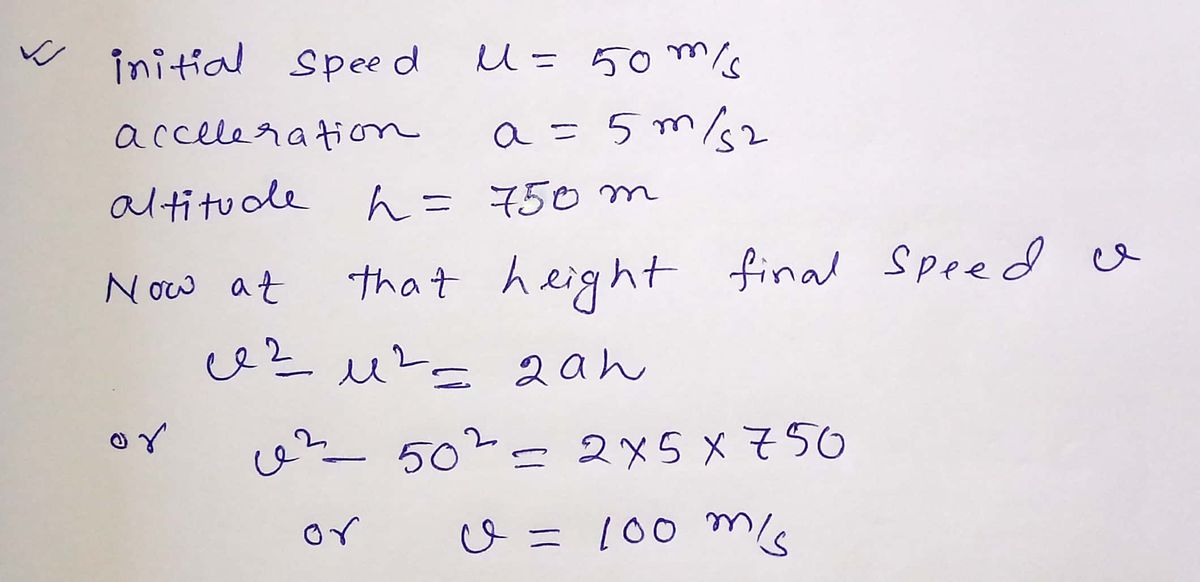 initial speed u = 50 m/s
acceleration a = 5 m/s2
altitude h = 750 m
Now at that height final speed v
v² - u² = 2ah
or v² - 50² = 2×5×750
or v = 100 m/s